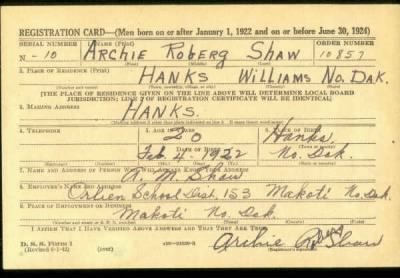 REGISTRATION CARD—(Men born on or after January 1, 1922 and on or before June 30, 1924)
SERIAL NUMBER 1. NAME (Print) ORDER NUMBER
N-10 ARCHIE ROBERG SHAW 10857
(First) (Middle) (Last)
2. PLACE OF RESIDENCE (Print)
HANKS WILLIAMS NO. DAK.
(Number and street) (Town, township, village, or city) (County) (State)
[THE PLACE OF RESIDENCE GIVEN ON THE LINE ABOVE WILL DETERMINE LOCAL BOARD
JURISDICTION; LINE 2 OF REGISTRATION CERTIFICATE WILL BE IDENTICAL]
3. MAILING ADDRESS
HANKS.
[Mailing address if other than place indicated on line 2. If same insert word same]
4. TELEPHONE 5. AGE IN YEARS 6. PLACE OF BIRTH
20 Hanks
DATE OF BIRTH
Feb 4 - 1922 No. Dak.
7. NAME AND ADDRESS OF PERSON WHO WILL ALWAYS KNOW YOUR ADDRESS
M. Shaw
8. EMPLOYER'S NAME AND ADDRESS
School Dist. 153 Makoti No. Dak.
9. PLACE OF EMPLOYMENT OR BUSINESS
Makoti No. Dak.
I AFFIRM THAT I HAVE VERIFIED ABOVE ANSWERS AND THAT THEY ARE TRUE.
D. S. S. Form 1
(Revised 6-9-42) (over) Archie Roberg Shaw